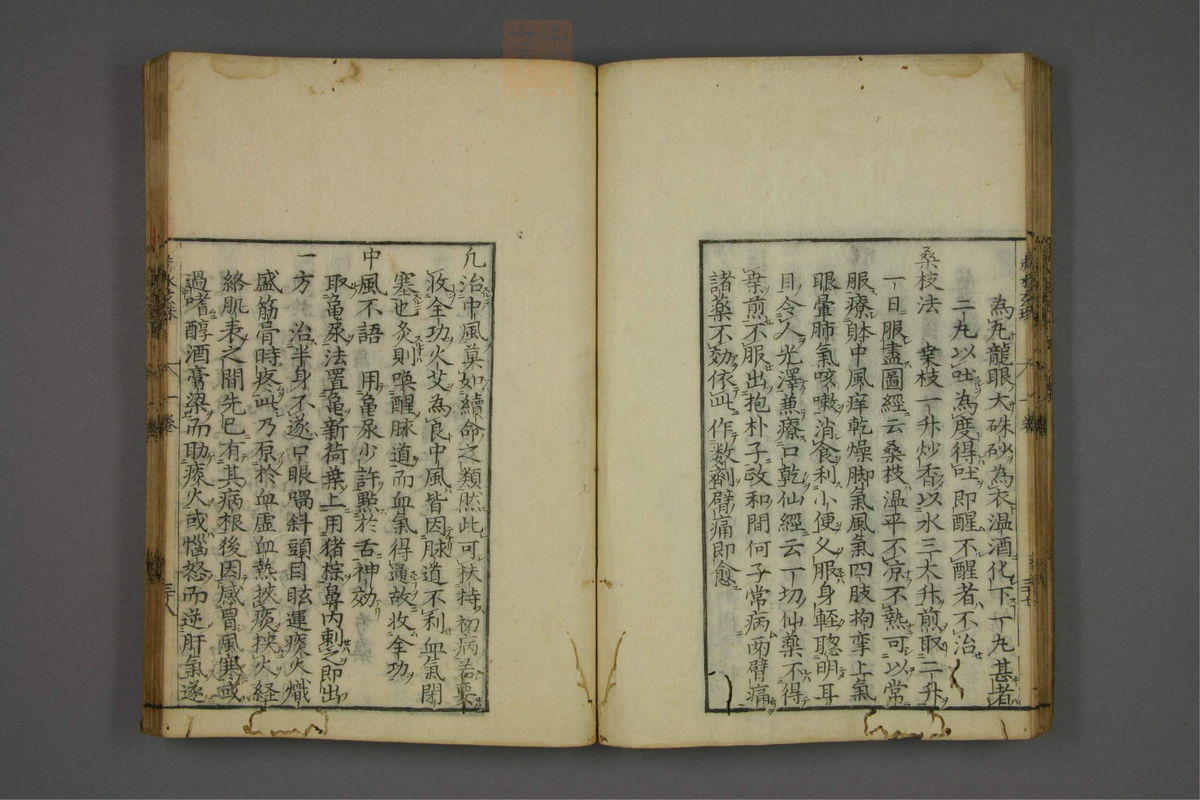 為丸龍眼大硃砂為衣温酒化下一丸甚者
二丸以吐為度得吐即醒不醒者不治
桑枝法　桑枝一升炒香以水三大升煎取二升
一日服盡圖經云桑枝温平不凉不熱可以常
服療躰中風痒乾燥脚氣風氣四肢拘攣上氣
眼暈肺氣咳嗽消食利小便久服身軽聡明耳
目令人光澤兼療口乾仙經云一切仙藥不得
桒煎不服出抱朴子政和間何子常病両臂痛
諸薬不効依此作数劑臂痛即愈
凢治中風莫如續命之類然此可扶持初病若要
收全功火艾為良中風皆因脉道不利血氣閉
塞也灸則喚醒脉道而血氣得通故收全功
中風不語　用亀尿少許點於舌神効
取亀尿法置亀新荷葉上用猪棕鼻内刺之即出
一方　治半身不遂口眼喎斜頭目眩運痰火熾
盛筋骨時疼此乃原於血虚血熱挾痰挾火経
絡肌表之間先已有其病根後因感冒風寒或
過嗜醇酒膏粱而助痰火或惱怒而逆肝氣遂